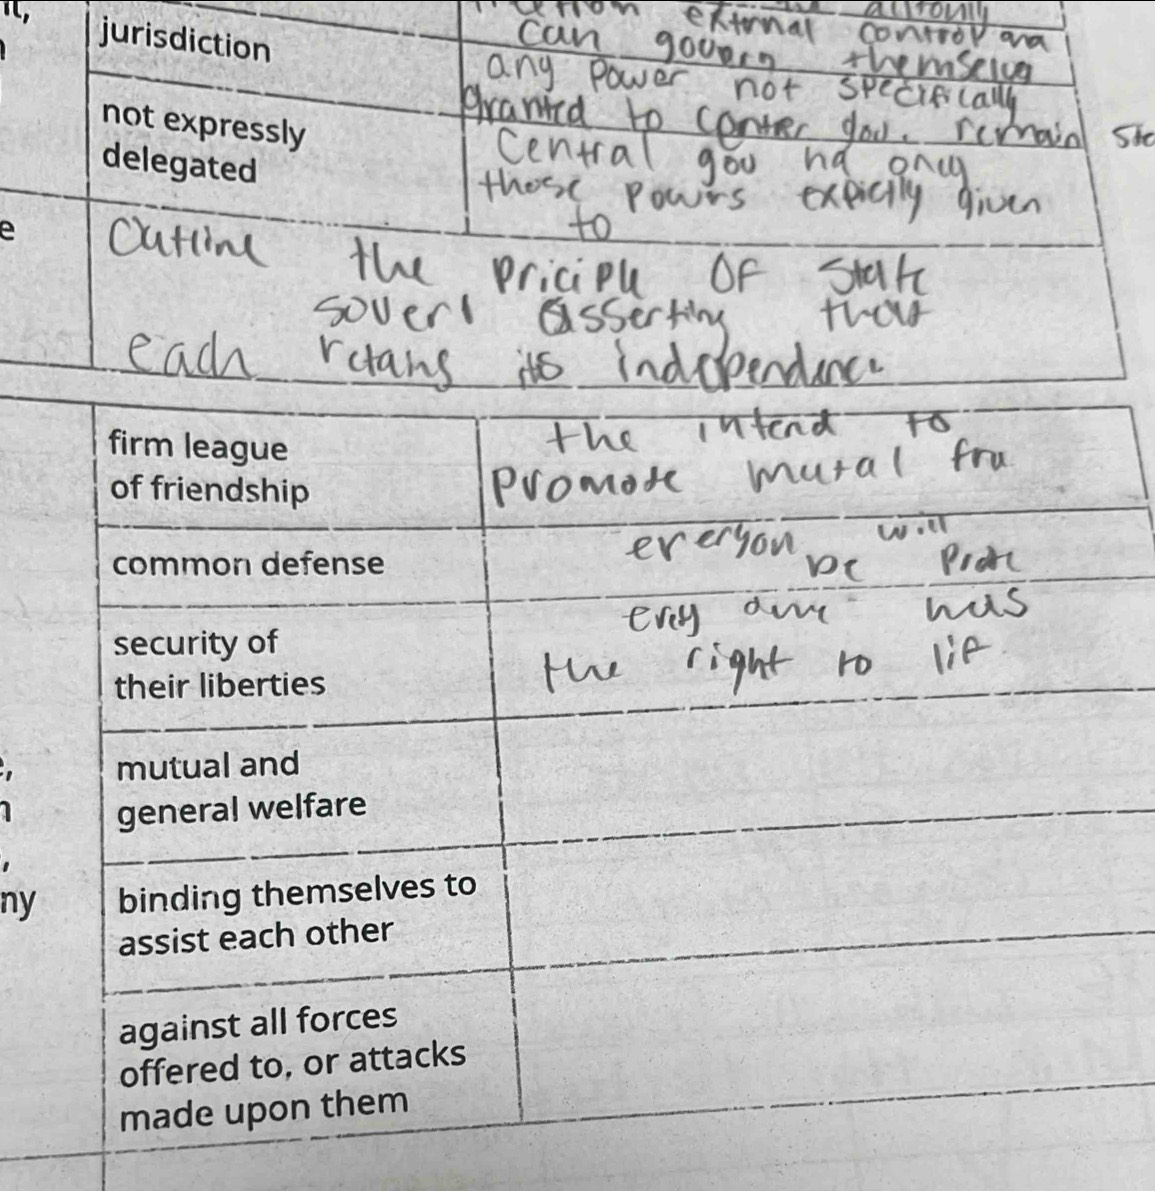 jurisdiction
external control and
can govern themselves
any power not specifically
granted to center gov. remain
not expressly
delegated
Central gov had only
those powirs expicily given
to
e
Outline the priciple OF State
soveri asserting that
each retains its independence
firm league
of friendship
the intend to
promote mutal fru
common defense
everyon will
be Prote
security of
their liberties
has
the right to lif
mutual and
general welfare
ny
binding themselves to
assist each other
against all forces
offered to, or attacks
made upon them